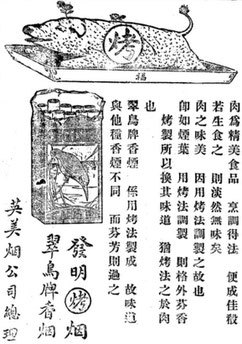 烤
福
肉為精美食品 烹調得法 便成佳殽
若生食之 則淡然無味矣
肉之味美 因用烤法調製之故也
卽如煙葉 用烤法調製 則格外芬香
烤製所以換其味道 猶烤法之於肉
也
翠鳥牌香煙 係用烤法製成 故味道
與他種香煙不同 而芬芳則過之
發明烤烟
翠鳥牌香烟
英美烟公司總理